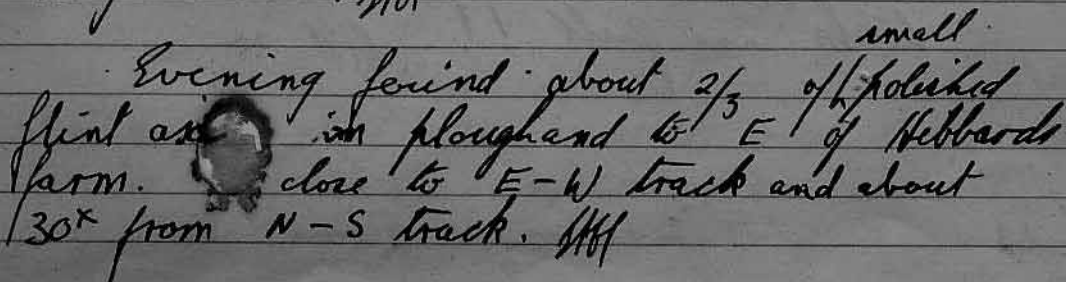 small
Evening found about 2/3 of polished
flint in ploughand to E of Hebbards
farm. close to E-W track and about
30x from N-S track.